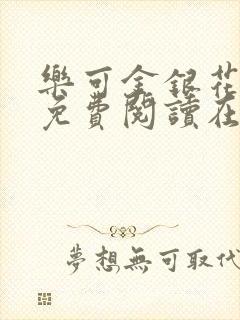 樂可金銀花
免費閱讀在
夢想無可取代